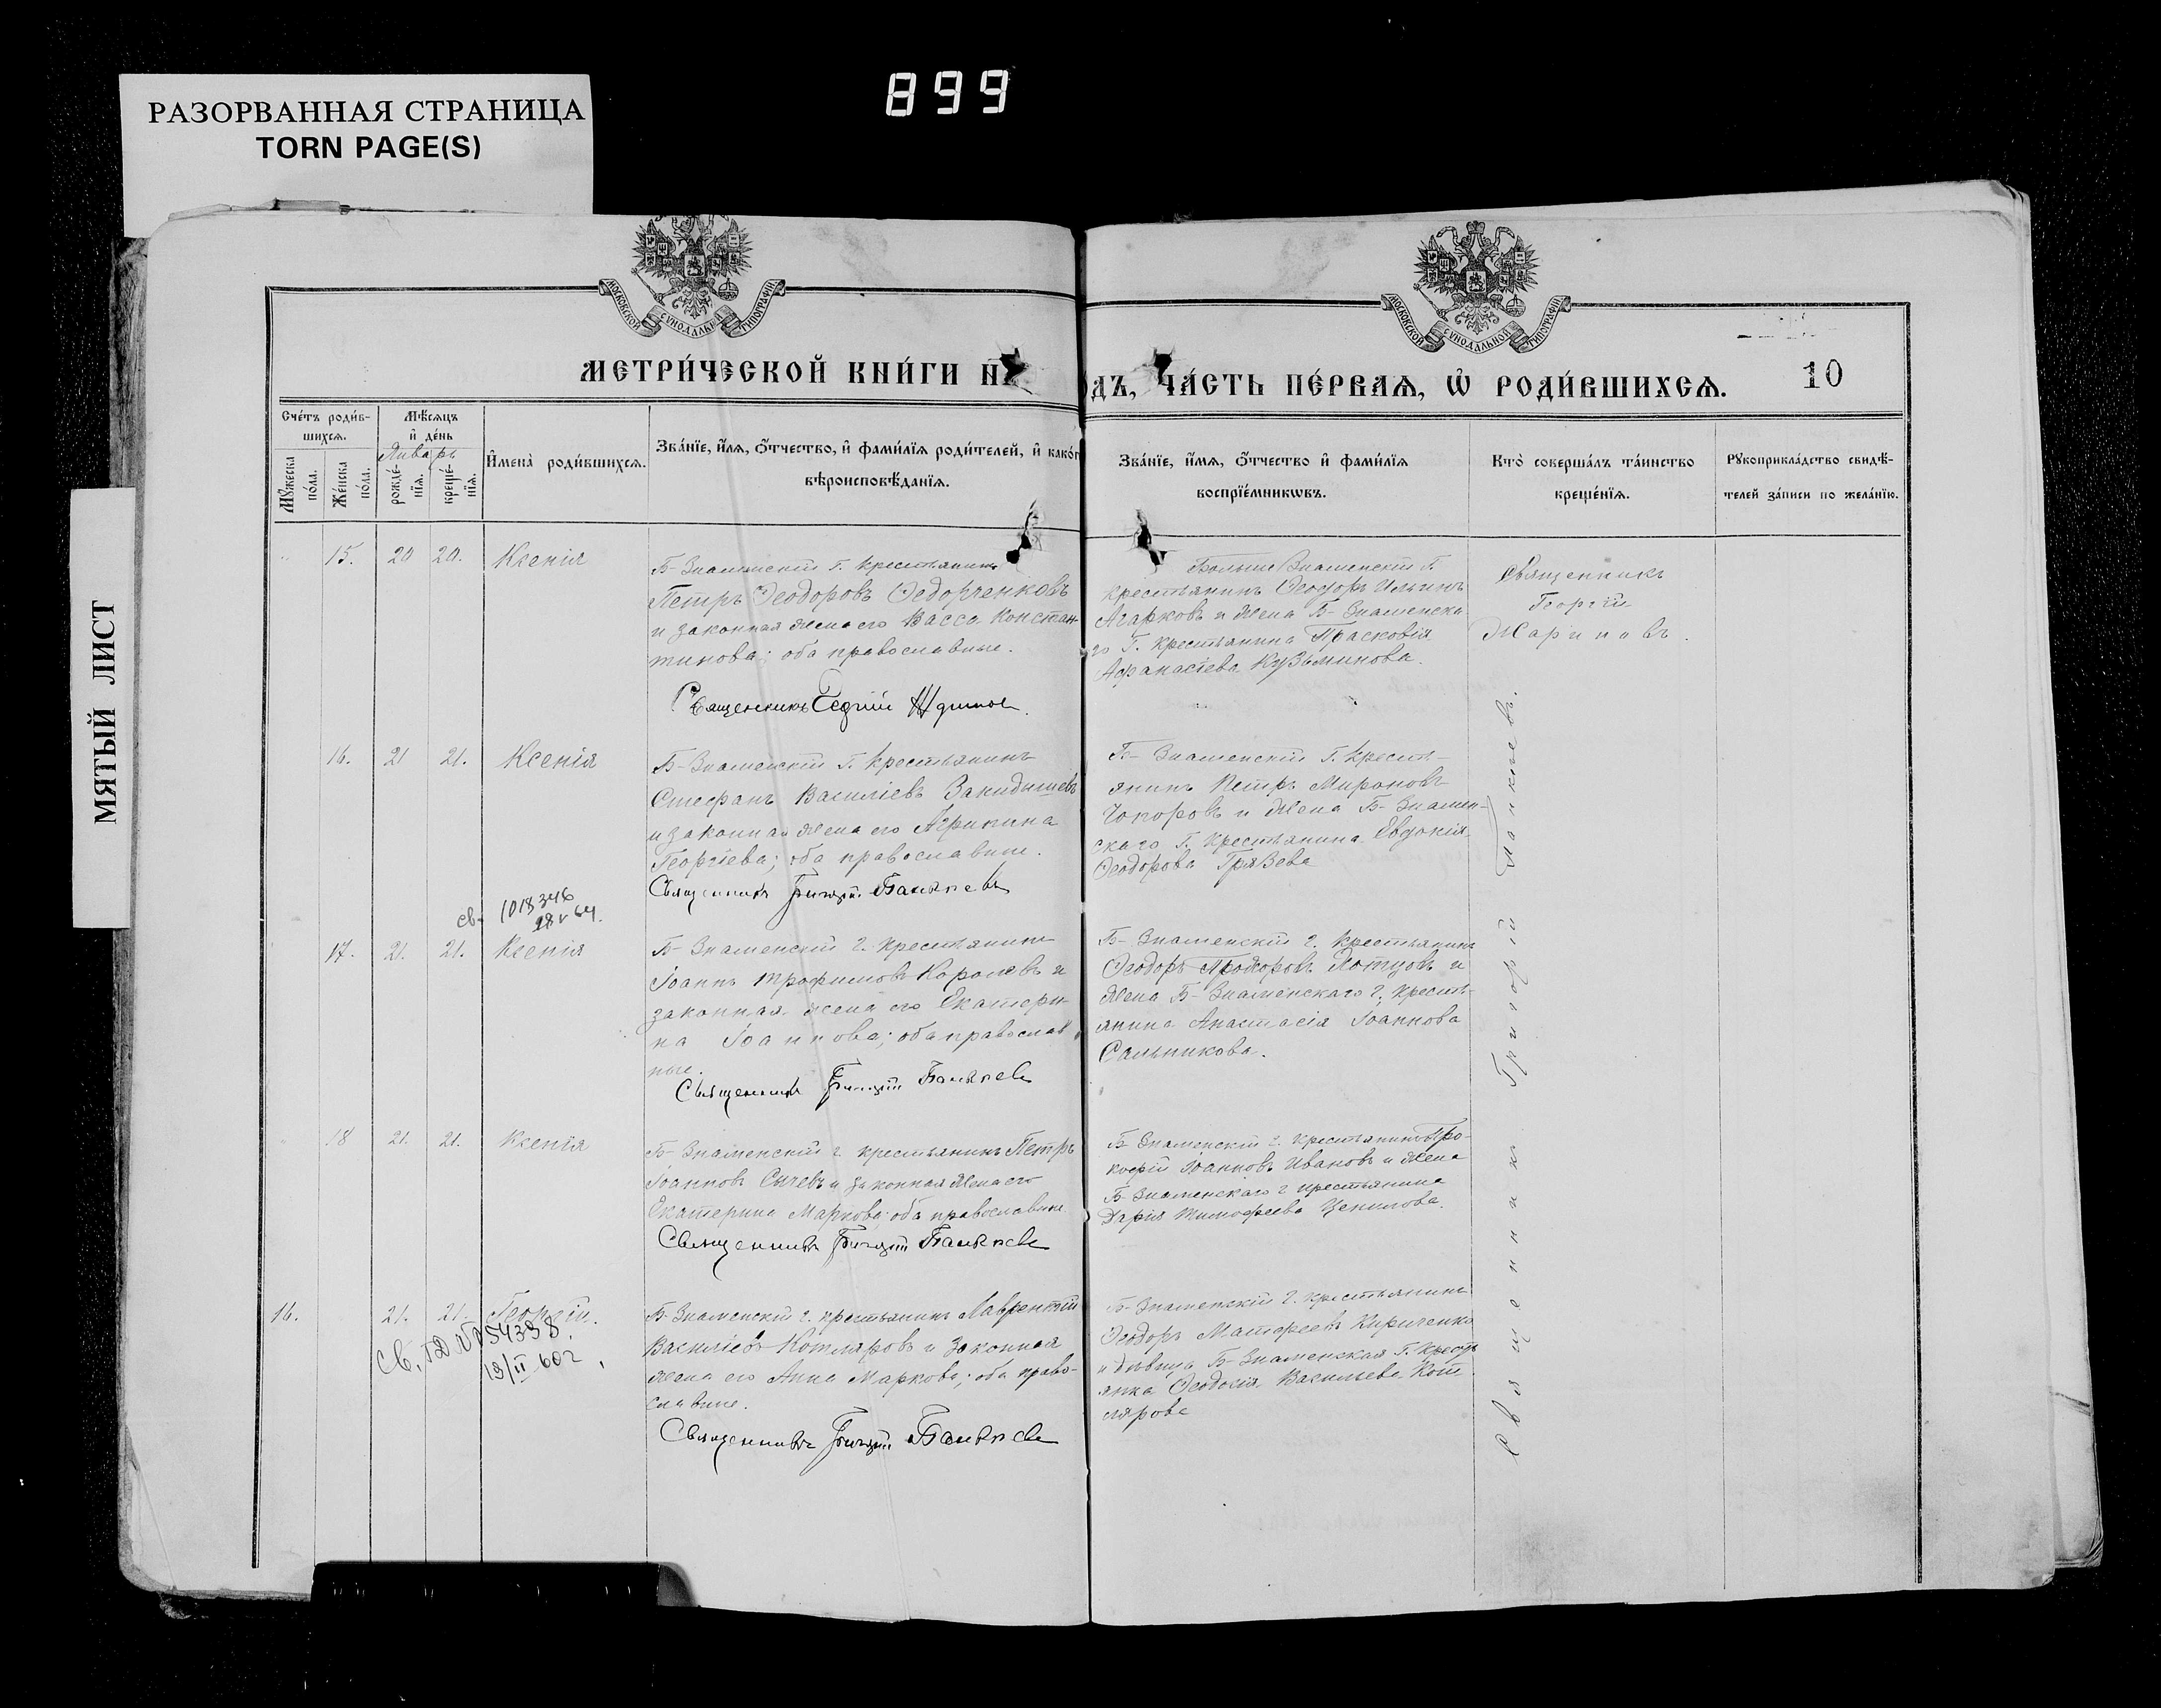 899
РАЗОРВАННАЯ СТРАНИЦА
TORN PAGE(S)
МЯТЫЙ ЛИСТ
МОСКОВСКОЙ СѴНОДАЛЬНОЙ ТИПОГРАФІИ
МОСКОВСКОЙ СѴНОДАЛЬНОЙ ТИПОГРАФІИ
МЕТРИ́ЧЕСКОЙ КНИ́ГИ НА
ОДЪ, ЧА́СТЬ ПЕ́РВАѦ, Ѿ РОДИ́ВШИХСѦ.
10
Сче́тъ роди́в-
шихсѧ.
Мꙋ́жеска
по́ла.
Же́нска
по́ла.
Мѣ́сѧцъ
и҆ де́нь
Январь
рожде́-
нїѧ.
креще́-
нїѧ.
И҆мена̀ роди́вшихсѧ.
Зва́нїе, и҆́мѧ, ѻ҆́тчество, и҆ фами́лїѧ роди́телей, и҆ како́г
вѣроисповѣ́данїѧ.
Зва́нїе, и҆́мѧ, ѻ҆́тчество и҆ фами́лїѧ
воспрїе́мникѡвъ.
Кто̀ соверша́лъ та́инство
креще́нїѧ.
Рꙋкоприкла́дство свидѣ́-
телей за́писи по жела́нїю.
15. 20 20. Ксенія
Б-Знаменскій Г. крестьянинъ
Петръ Ѳеодоровъ Ѳедорченковъ
и законная жена его Васса Констан-
тинова; оба православные.
Священникъ Георгій Жариновъ.
Больше Знаменскій Г.
крестьянинъ Ѳеодоръ Ильинъ
Агарковъ и жена Б-Знаменска
го Г. крестьянина Прасковія
Афанасіева Кузьминова.
Священникъ
Георгій
Жариновъ.
16. 21 21. Ксенія
Б-Знаменскій Г. крестьянинъ
Стефанъ Василіевъ Закидышевъ
и законная жена его Агрипина
Георгіева; оба православные.
Священникъ Григорій
Б-Знаменскій Г. кресть-
янинъ Петръ Мироновъ
Чопоровъ и жена Б-Знамен-
скаго Г. крестьянина Евдокія
Ѳеодорова Грязева
св. 1018346
28 V 64.
17. 21. 21. Ксенія
Б-Знаменскій г. крестьянинъ
Іоаннъ Трофимовъ Королевъ и
законная жена его Екатери-
на Іоаннова; оба православ
ные.
Священникъ Григорій
Б-Знаменскій г. крестьянинъ
Ѳеодоръ Прохоровъ и
жена Б-Знаменскаго г. кресть-
янина Анастасія Іоаннова
Сальникова.
18 21. 21. Ксенія
Б-Знаменскій г. крестьянинъ Петръ
Іоанновъ Сычевъ и законная жена его
Екатерина Маркова; оба православные
Священникъ Григорій
Б Знаменскій г. крестьянинъ Про-
кофій Іоанновъ Ивановъ и жена
Б-Знаменскаго г крестьянина
Дарія Тимофеева
16. 21. 21. Георгій.
св. ГД № 54398.
13/II 60 г.
Б-Знаменскій г. крестьянинъ Лаврентій
Василіевъ Котляровъ и законная
жена его Анна Маркова; оба право-
славные.
Священникъ Григорій
Б-Знаменскій г. крестьянинъ
Ѳеодоръ Матфеевъ Кириченко
и дѣвица Б-Знаменская Г. кресть
янка Ѳеодосія Васильева Кот
лярова
Священникъ Григорій